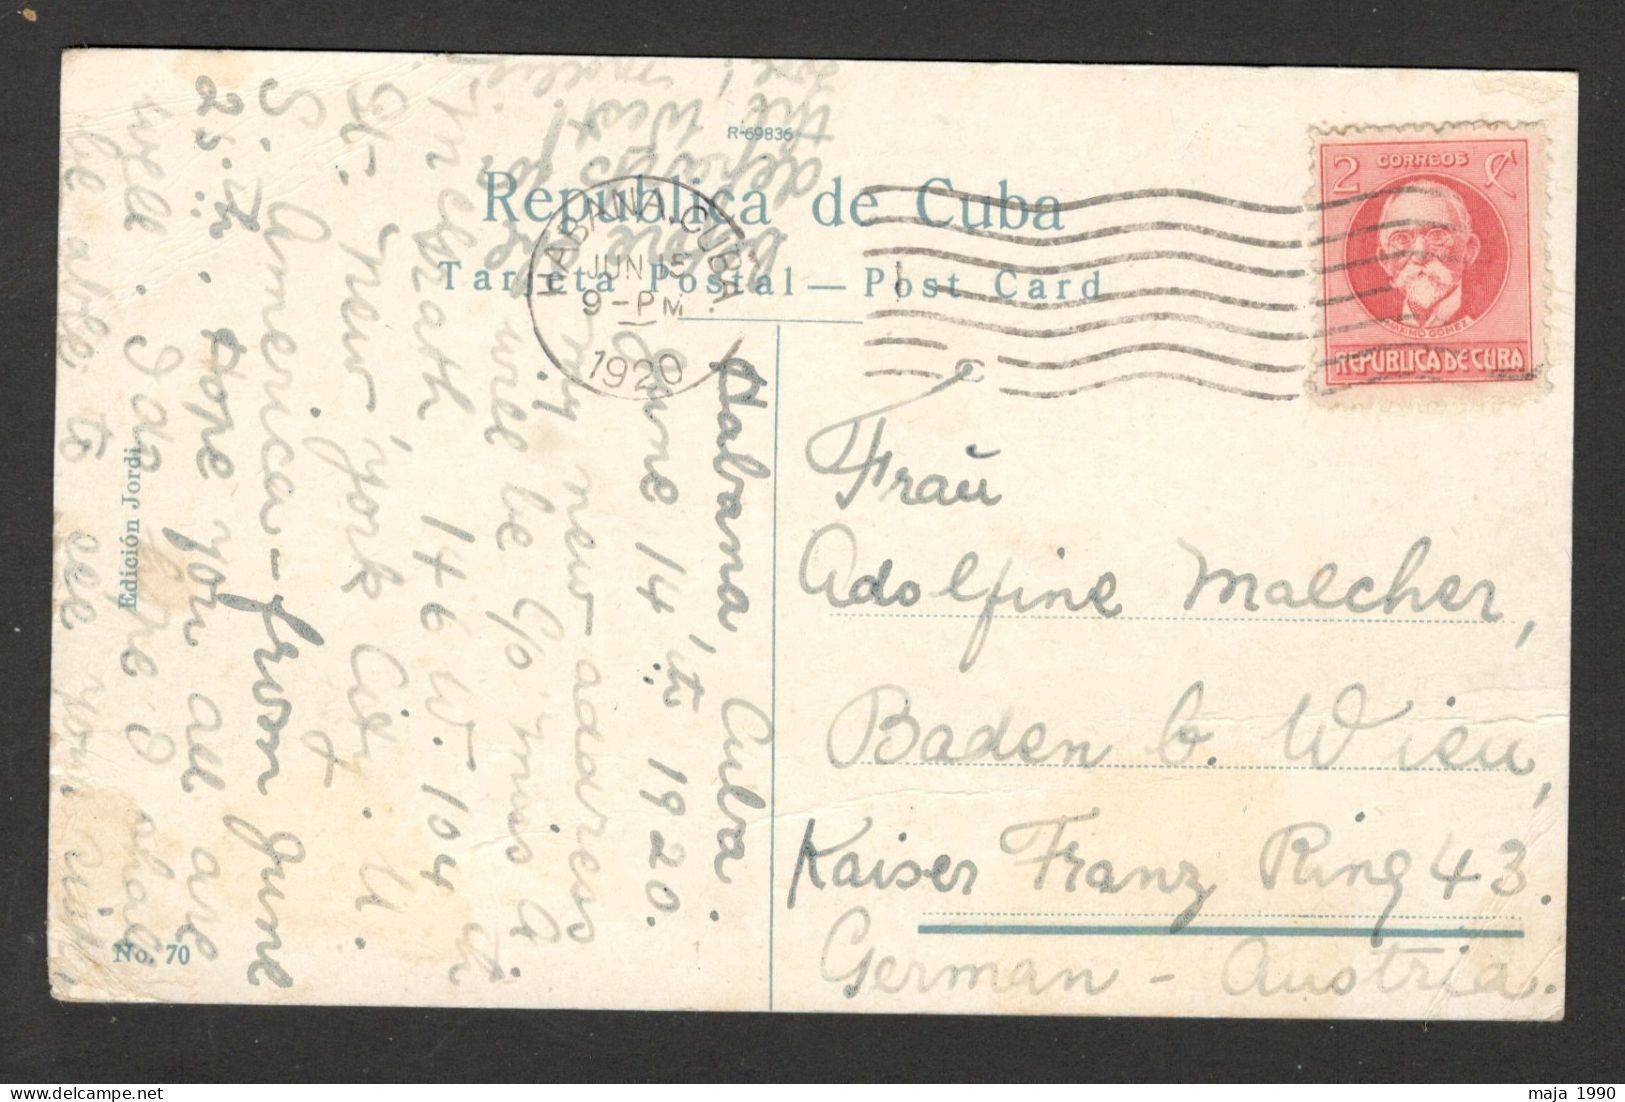 R-69836
República de Cuba
Tarjeta Postal — Post Card
HABANA, CUBA.
JUN 15
9-PM
1920
2 CORREOS
MAXIMO GOMEZ
REPUBLICA DE CUBA
Edición Jordi
No. 70
Habana, Cuba.
June 14'th 1920.
My new address
will be c/o Miss A
McGrath, 146 W. 104 th
St. New York City. U.
S. America - from June
25.th. Hope you all are
well. I do hope I shall
be able to see you
Frau
Adolfine Malcher,
Baden b. Wien,
Kaiser Franz Ring 43.
German - Austria.
maja 1990